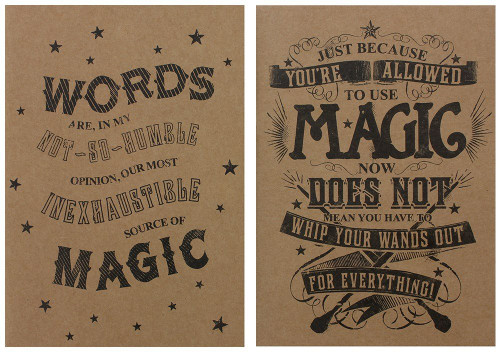 WORDS
ARE, IN MY
NOT-SO-HUMBLE
OPINION, OUR MOST
INEXHAUSTIBLE
SOURCE OF
MAGIC
JUST BECAUSE
YOU'RE ALLOWED
TO USE
MAGIC
NOW
DOES NOT
MEAN YOU HAVE TO
WHIP YOUR WANDS OUT
FOR EVERYTHING!